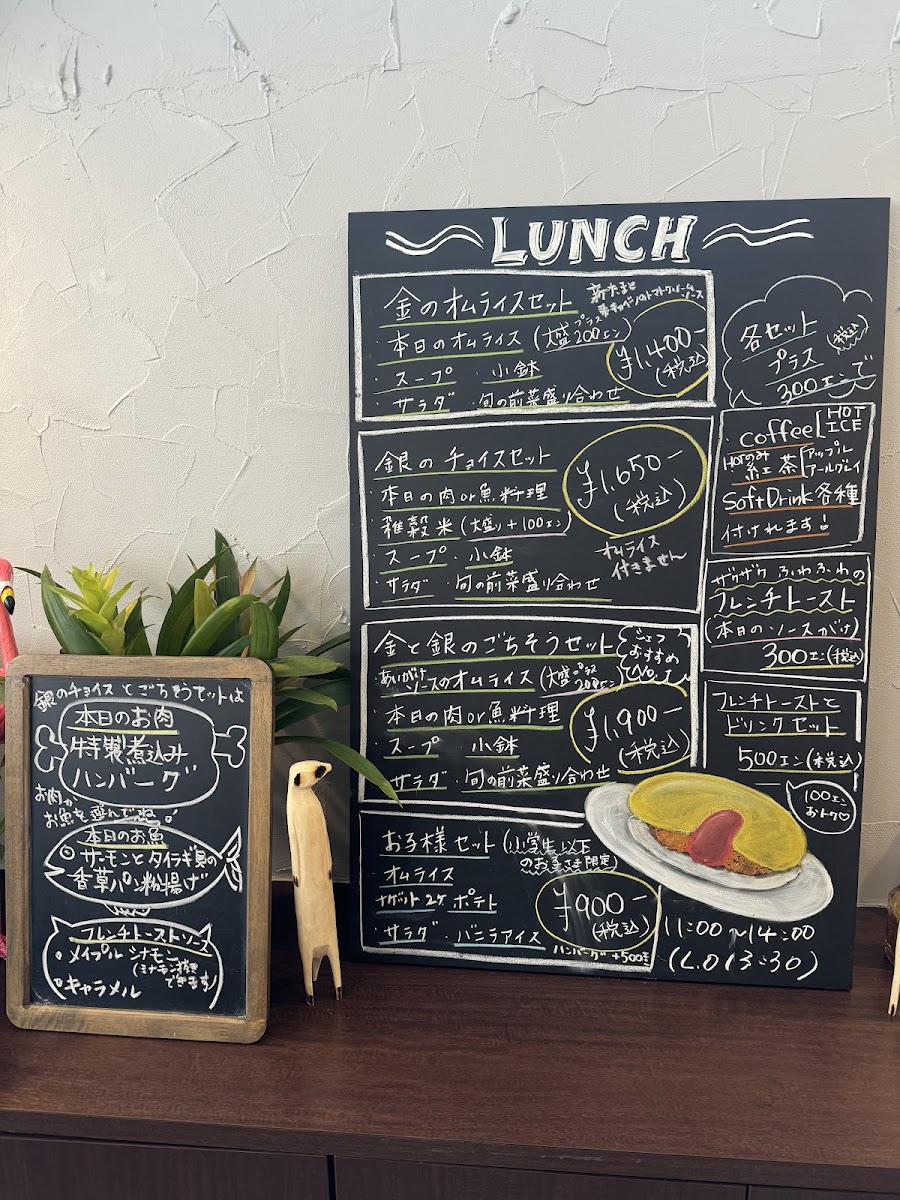 LUNCH
金のオムライスセット
本日のオムライス (大盛プラス200エン)
・スープ ・小鉢
・サラダ ・旬の前菜盛り合わせ
¥1,400-
(税込)
銀のチョイスセット
・本日の肉or魚料理
・雑穀米(大盛り+100エン)
・スープ ・小鉢
・サラダ ・旬の前菜盛り合わせ
¥1,650-
(税込)
オムライス
付きません
金と銀のごちそうセット
シェフ
おすすめ
No.1
あいがけ
ソースのオムライス (大盛プラス200エン)
・本日の肉or魚料理
・スープ ・小鉢
・サラダ ・旬の前菜盛り合わせ
¥1,900-
(税込)
お子様セット (小学生以下
のお子さま限定)
・オムライス
・ナゲット2ケ ポテト
・サラダ ・バニラアイス
¥900-
(税込)
ハンバーグ +500エン
各セット
プラス
300エンで
(税込)
・coffee HOT
ICE
HOTのみ
紅茶 アップル
アールグレイ
SoftDrink各種
付けれます!
ザクザク ふわふわの
フレンチトースト
(本日のソースがけ)
300エン(税込)
フレンチトーストと
ドリンクセット
500エン(税込)
100エン
おトク♡
11:00~14:00
(L.O 13:30)
銀のチョイスとごちそうセットは
本日のお肉
特製煮込み
ハンバーグ
お肉か
お魚を選んでね!
本日のお魚
サーモンとタイラギ貝の
香草パン粉揚げ
フレンチトーストソース
・メイプルシナモン
(シナモン抜き
できます)
・キャラメル